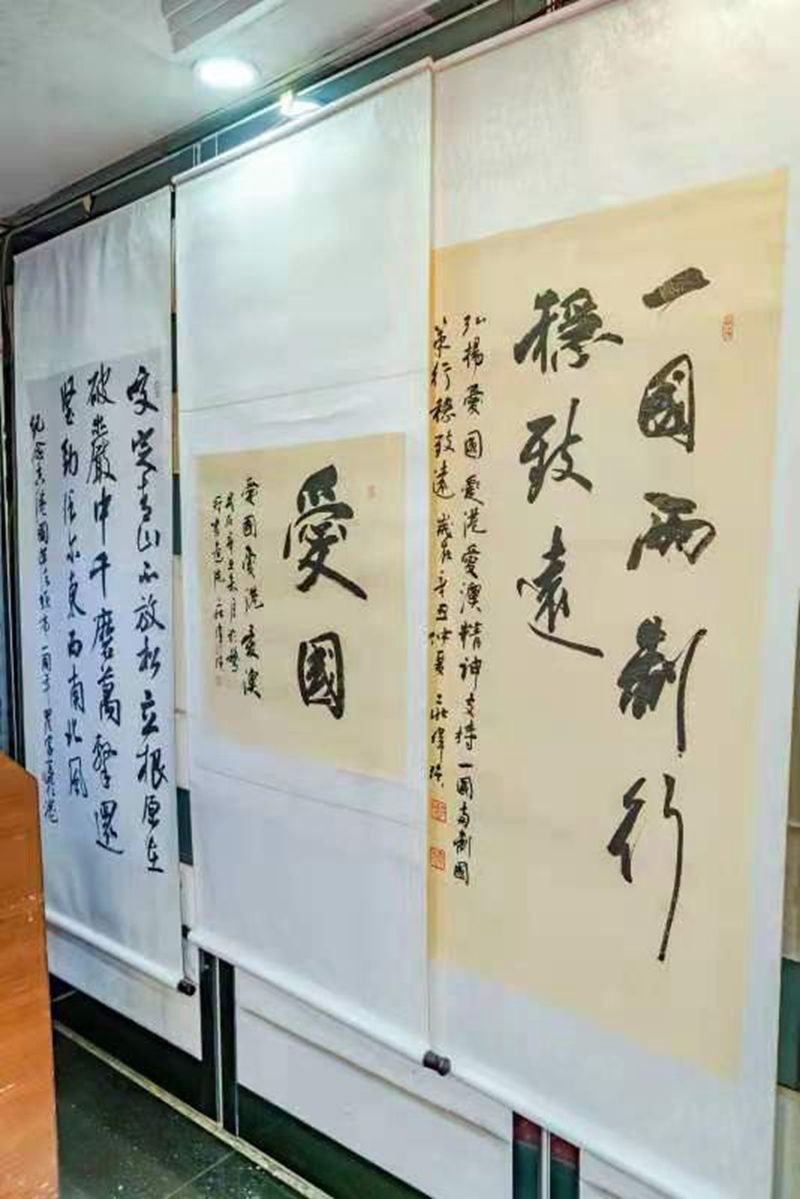 一國兩制行
穩致遠
弘揚愛國愛港愛澳精神支持一國兩制國
策行穩致遠 歲在辛丑仲夏 莊偉
愛
國
愛國愛港愛澳
歲在辛丑
咬定青山不放松立根原在
破巖中千磨萬擊還
堅勁任尔東西南北風
紀念香港國安法頒布一周年